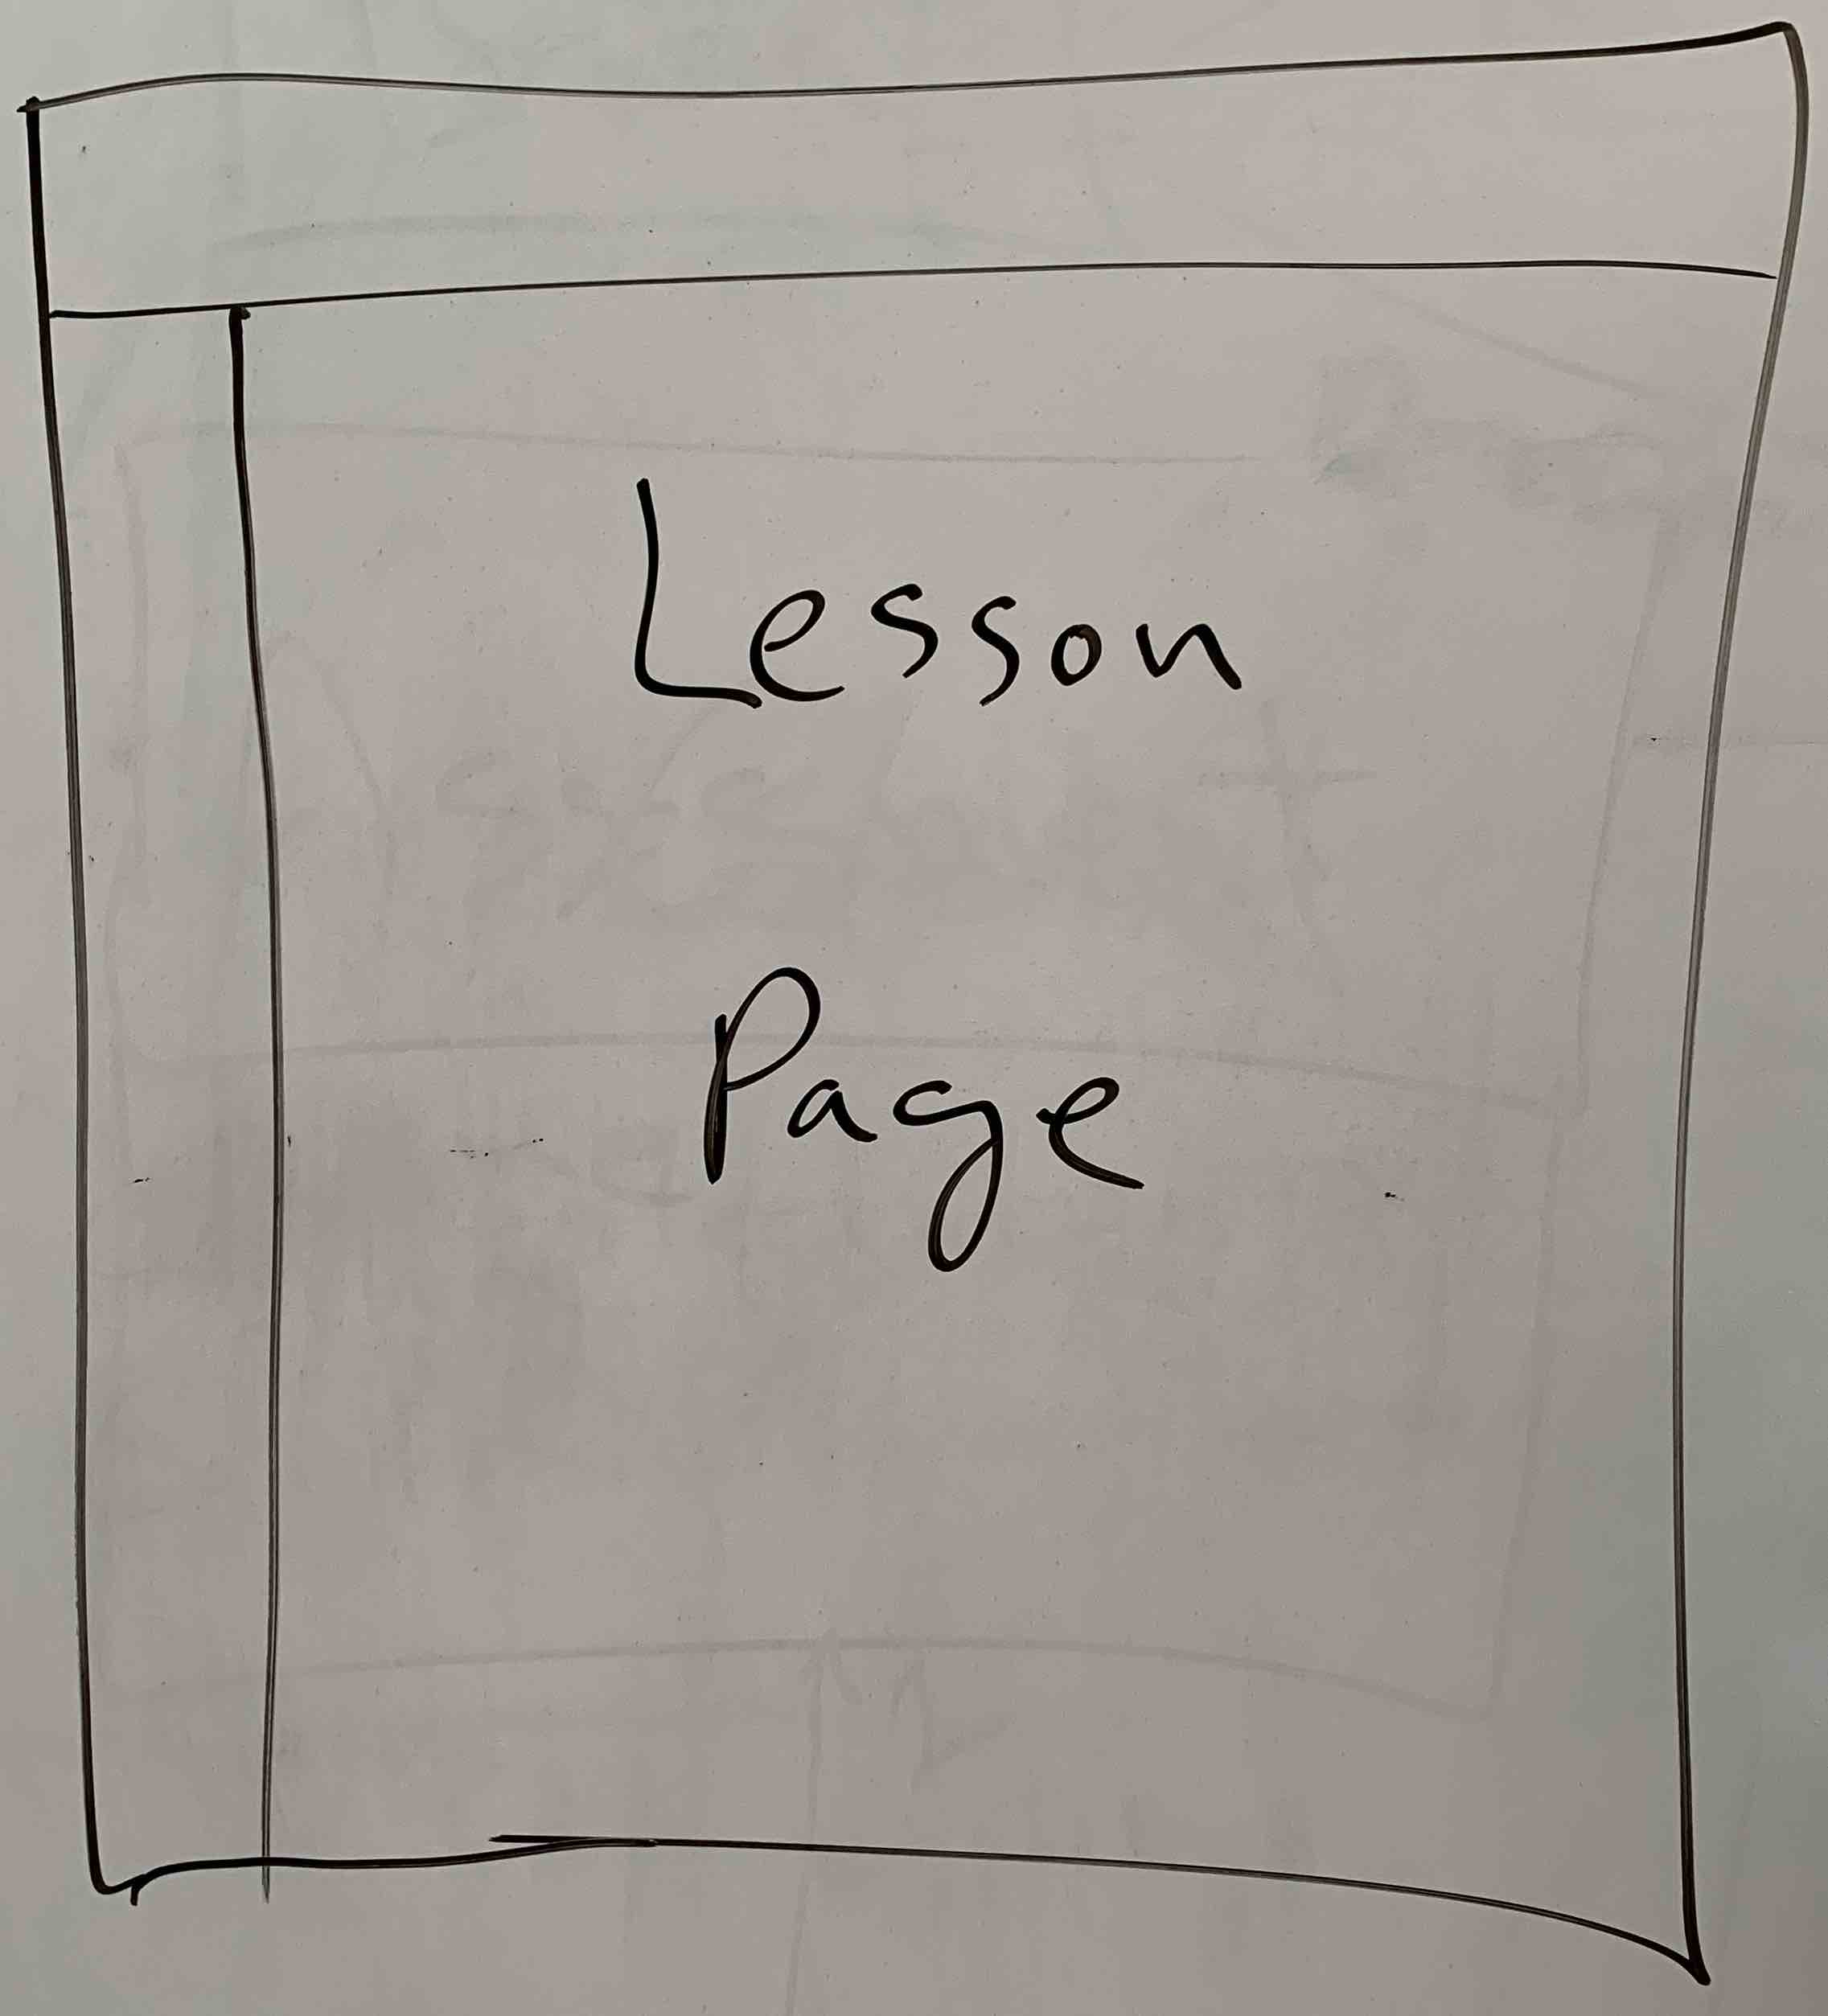 Lesson
Page